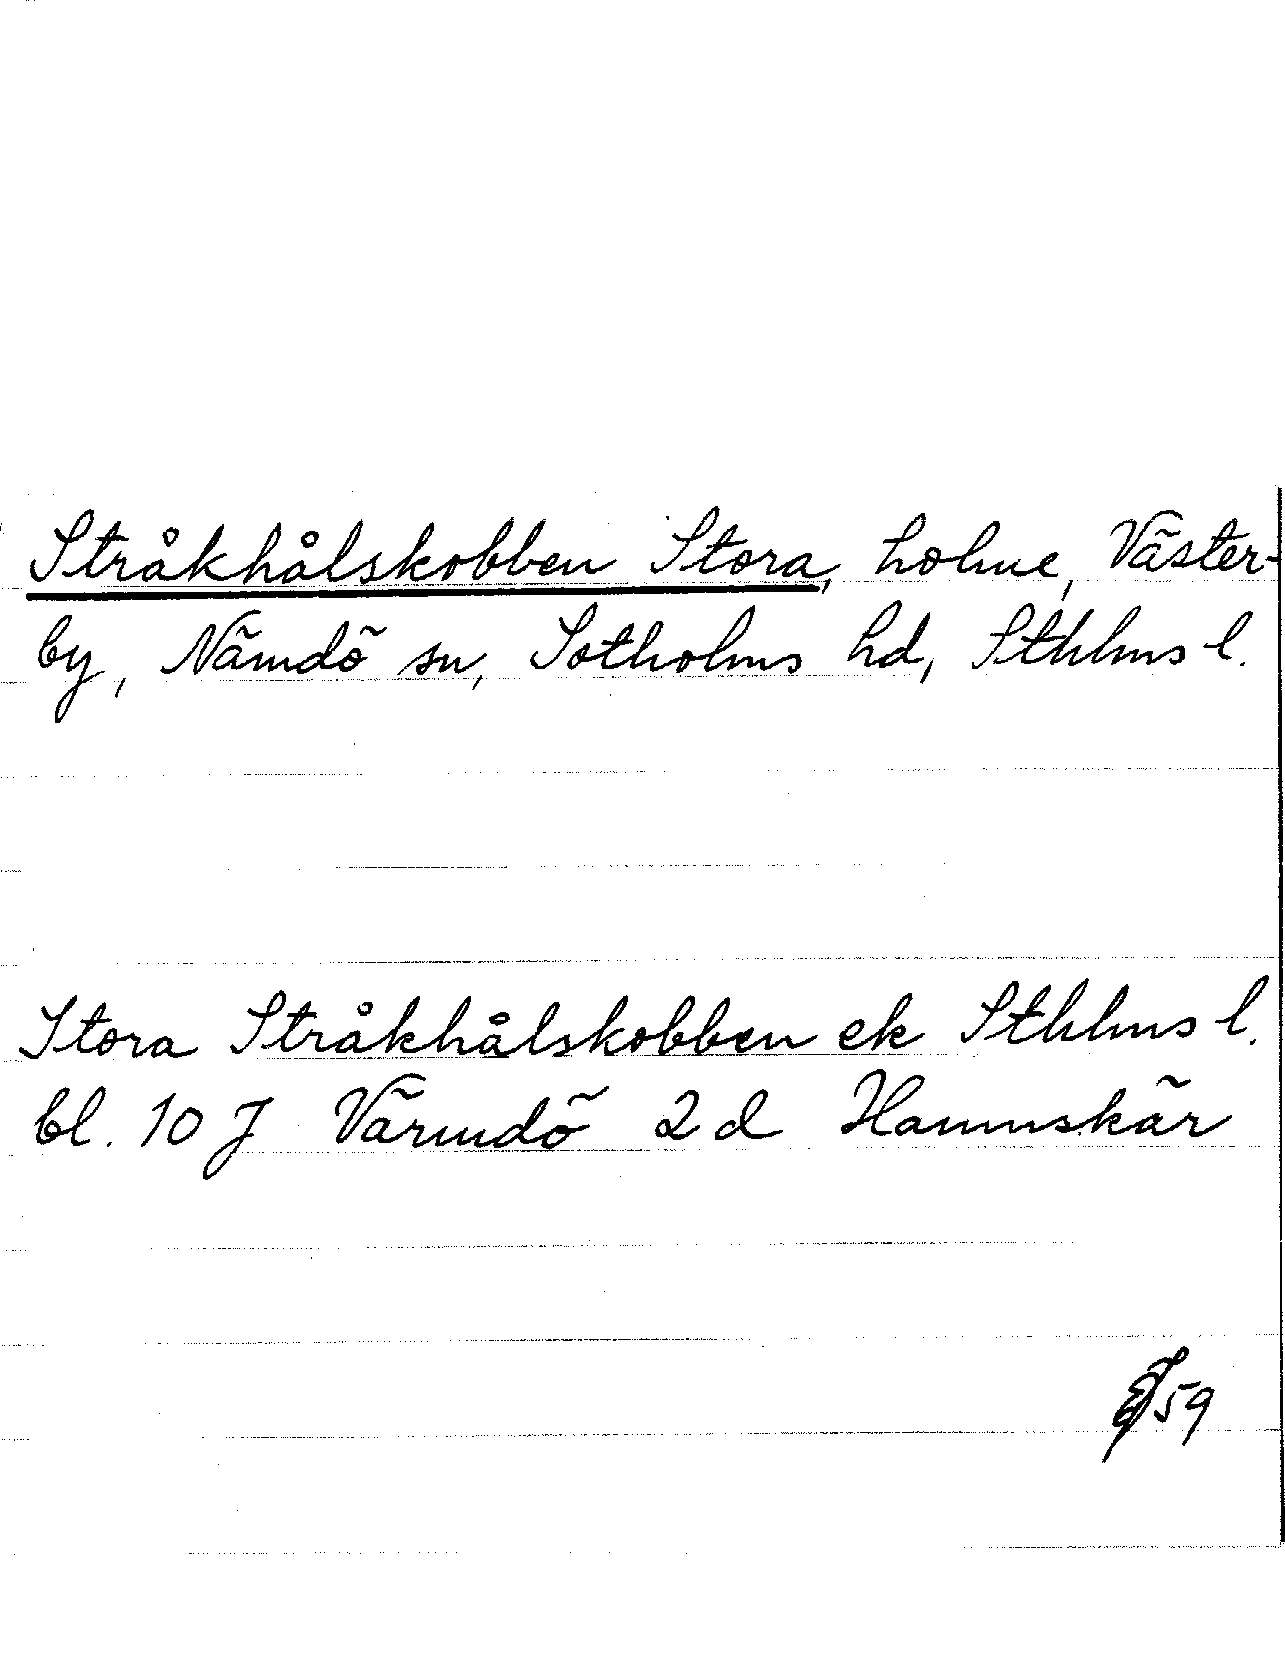 Stråkhålskobben Stora, holme, Väster-
by, Nämdö sn, Sotholms hd, Sthlms l.
Stora Stråkhålskobben ek Sthlms l.
bl. 10 J Värmdö 2d Hamnskär
59